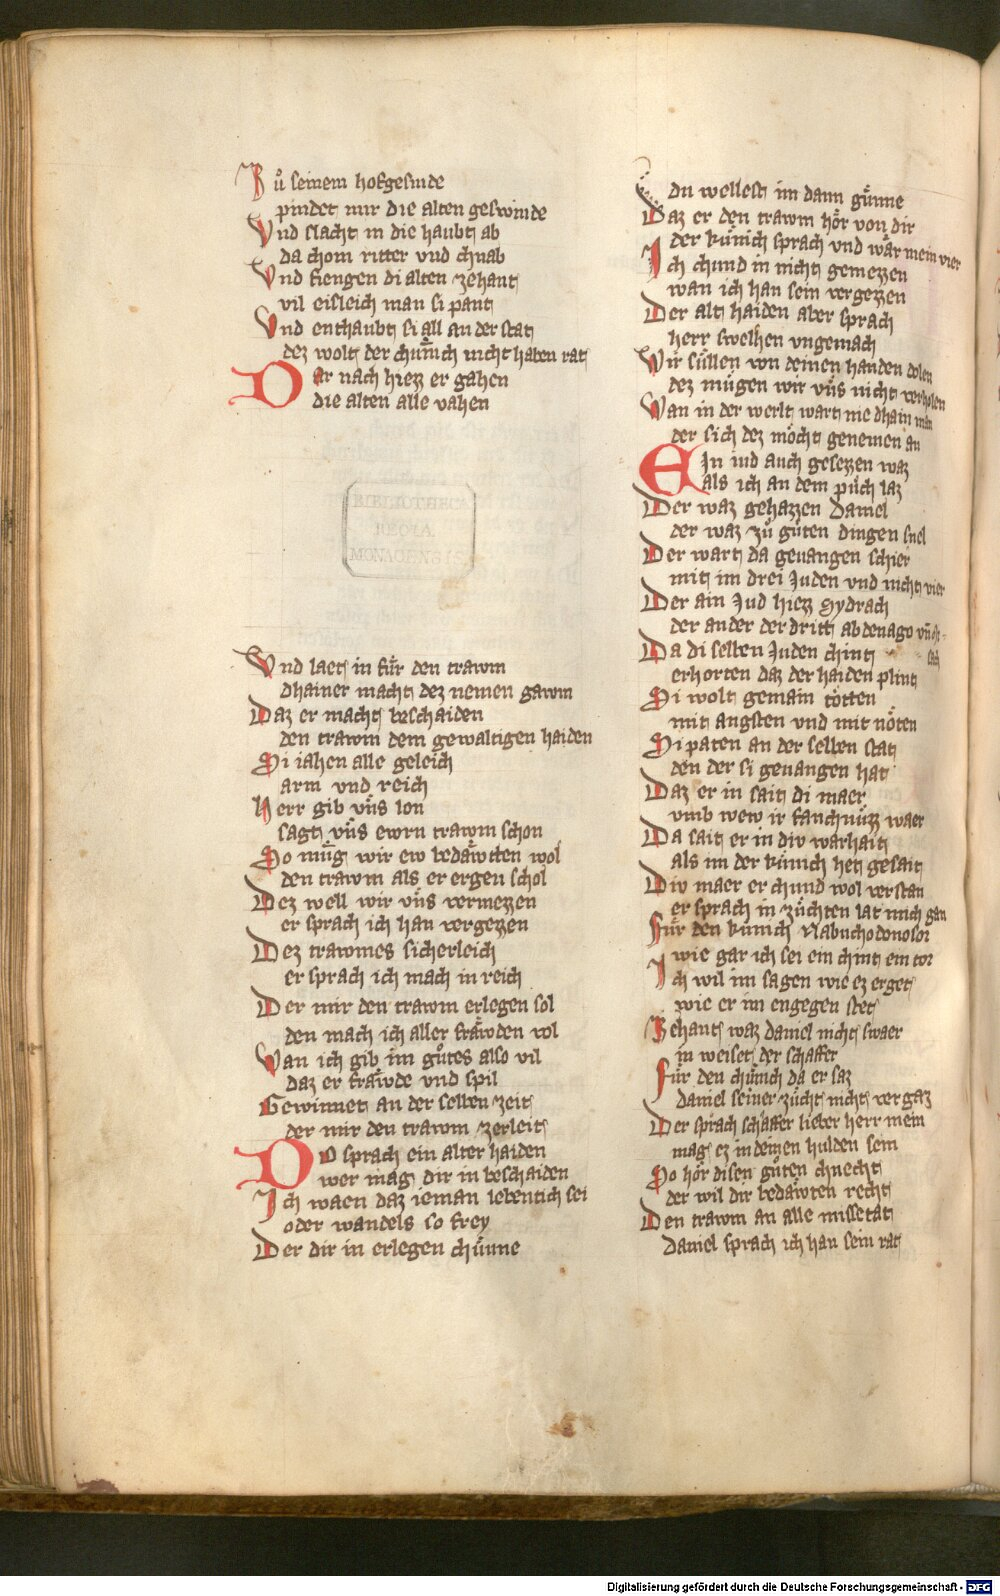 Zů seinem hofgesinde
pindet mir die alten geswinde
Vnd slacht in die haubt ab
da chom ritter vnd chnab
Vnd fiengen di alten zehant
vil eisleich man si pant
Vnd enthaubt si all an der stat
dez wolt der chünich nicht haben rat
Dar nach hiez er gahen
die alten alle vahen
BIBLIOTHECA
REGIA
MONACENSIS
Vnd laet in für den trawm
dhainer macht dez nemen gawm
Daz er macht beschaiden
den trawm dem gewaltigen haiden
Si iahen alle geleich
arm vnd reich
Herr gib vns lon
sagt vns ewrn trawm schon
So müg wir ew bedäwten wol
den trawm als er ergen schol
Dez well wir vns vermezzen
er sprach ich han vergezzen
Dez trawmes sicherleich
er sprach ich mach in reich
Der mir den trawm erlegen sol
den mach ich aller fräwden vol
Wan ich gib im gůtes also vil
daz er fräwde vnd spil
Gewinnet an der selben zeit
der mir den trawm zerleit
Do sprach ein alter haiden
wer mag dir in beschaiden
Ich waen daz ieman lebentich sei
oder wandels so frey
Der dir in erlegen chünne
du wellest im dann günne
Daz er den trawm hör von dir
der künich sprach vnd wär mein vier
Ich chund in nicht gemezzen
wan ich han sein vergezzen
Der alt haiden aber sprach
herr swelhen vngemach
Wir süllen von deinen handen dolen
dez mügen wir vns nicht verholen
Wan in der werlt wart nie dhain man
der sich dez möcht genemen an
Ein iud auch gesezzen waz
als ich an dem půch laz
Der waz gehazzen Daniel
der waz zů gůten dingen snel
Der wart da geuangen schier
mit im drei Juden vnd nicht vier
Der ain Jud hiez Sydrach
der ander der dritt abdenago vn̄
Da di selben Juden chint
erhorten daz der haiden plint
Si wolt gemain tötten
mit angsten vnd mit nöten
Si paten an der selben stat
den der si geuangen hat
Daz er in sait di maer
vmb wew ir fanchnüzz waer
Da sait er in div warhait
als im der künich het gesait
Div maer er chund wol verstan
er sprach in züchten lat mich gan
Für den künich Nabuchodonosor
wie gar ich sei ein chint ein tor
Ich wil im sagen wie ez erget
wie er im engegen stet
Zehant waz daniel nicht swaer
in weiset der schaffer
Für den chünich da er saz
daniel seiner zücht nicht vergaz
Der sprach schaffer lieber herr mein
mag ez in deinen hulden sein
So hör disen gůten chnecht
der wil dir bedäwten recht
Den trawm an alle missetat
daniel sprach ich han sein rat
Digitalisierung gefördert durch die Deutsche Forschungsgemeinschaft - DFG